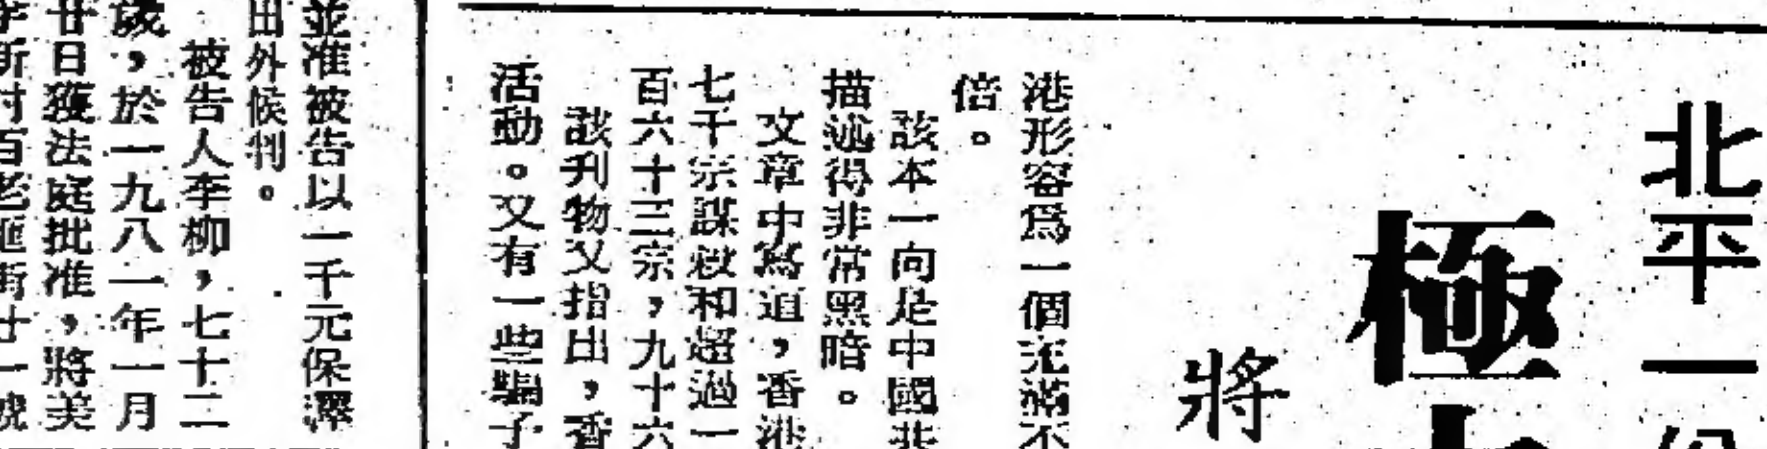 北平一份
極
將
港形容為一個充滿不
倍。
該本一向是中國北
描述得非常黑暗。
文章中寫道，香港
七千宗謀殺和超過一
百六十三宗，九十六
該刋物又指出，香
活動。又有一些騙子
並准被告以一千元保釋
出外候判。
被告人李柳，七十二
歲，於一九八一年一月
廿日獲法庭批准，將美
新村百老匯街廿一號